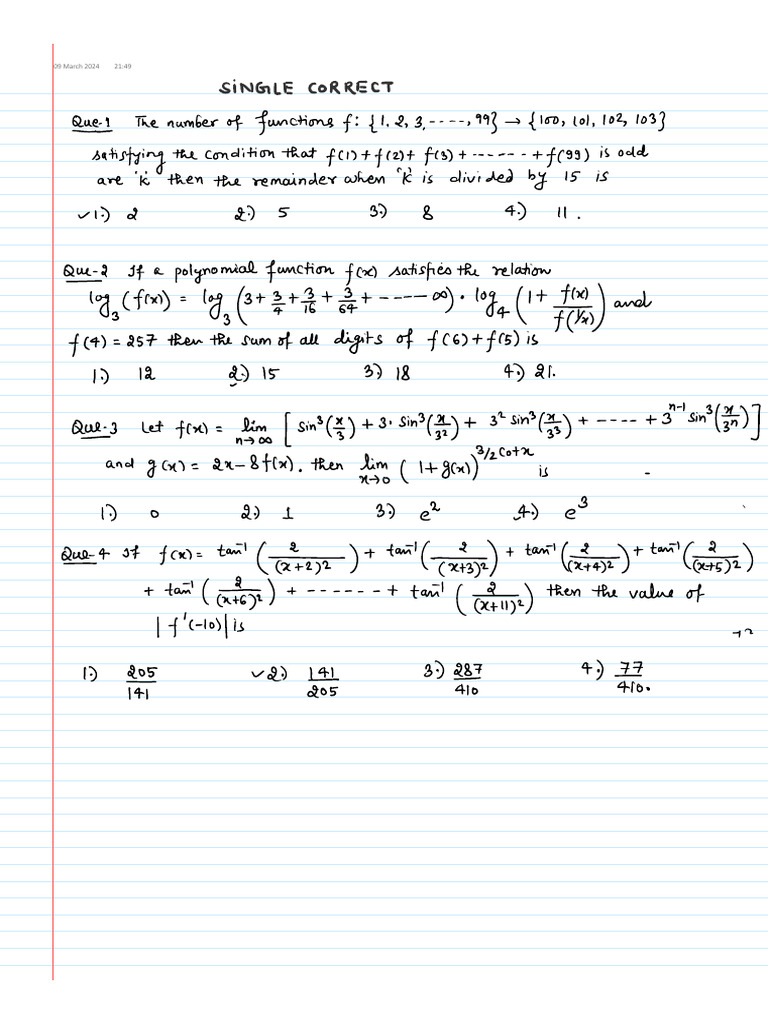 09 March 2024 21:49
SINGLE CORRECT
Que-1 The number of functions f: {1, 2, 3, ----, 99} → {100, 101, 102, 103}
satisfying the condition that f(1) + f(2) + f(3) + ------ + f(99) is odd
are 'k' then the remainder when 'k' is divided by 15 is
✓1.) 2 2.) 5 3.) 8 4.) 11.
Que-2 If a polynomial function f(x) satisfies the relation
log₃(f(x)) = log₃(3 + 3/4 + 3/16 + 3/64 + ----- ∞) · log₄(1 + f(x)/f(1/x)) and
f(4) = 257 then the sum of all digits of f(6) + f(5) is
1.) 12 2.) 15 3.) 18 4.) 21.
Que-3 Let f(x) = lim n→∞ [sin³(x/3) + 3. sin³(x/3²) + 3² sin³(x/3³) + ---- + 3ⁿ⁻¹ sin³(x/3ⁿ)]
and g(x) = 2x - 8f(x). then lim x→0 (1 + g(x))^(3/2 cot x) is -
1.) 0 2.) 1 3.) e² 4.) e³
Que-4 If f(x) = tan⁻¹(2/(x+2)²) + tan⁻¹(2/(x+3)²) + tan⁻¹(2/(x+4)²) + tan⁻¹(2/(x+5)²)
+ tan⁻¹(2/(x+6)²) + ------ + tan⁻¹(2/(x+11)²) then the value of
|f'(-10)| is
1.) 205/141 ✓2.) 141/205 3.) 287/410 4.) 77/410.